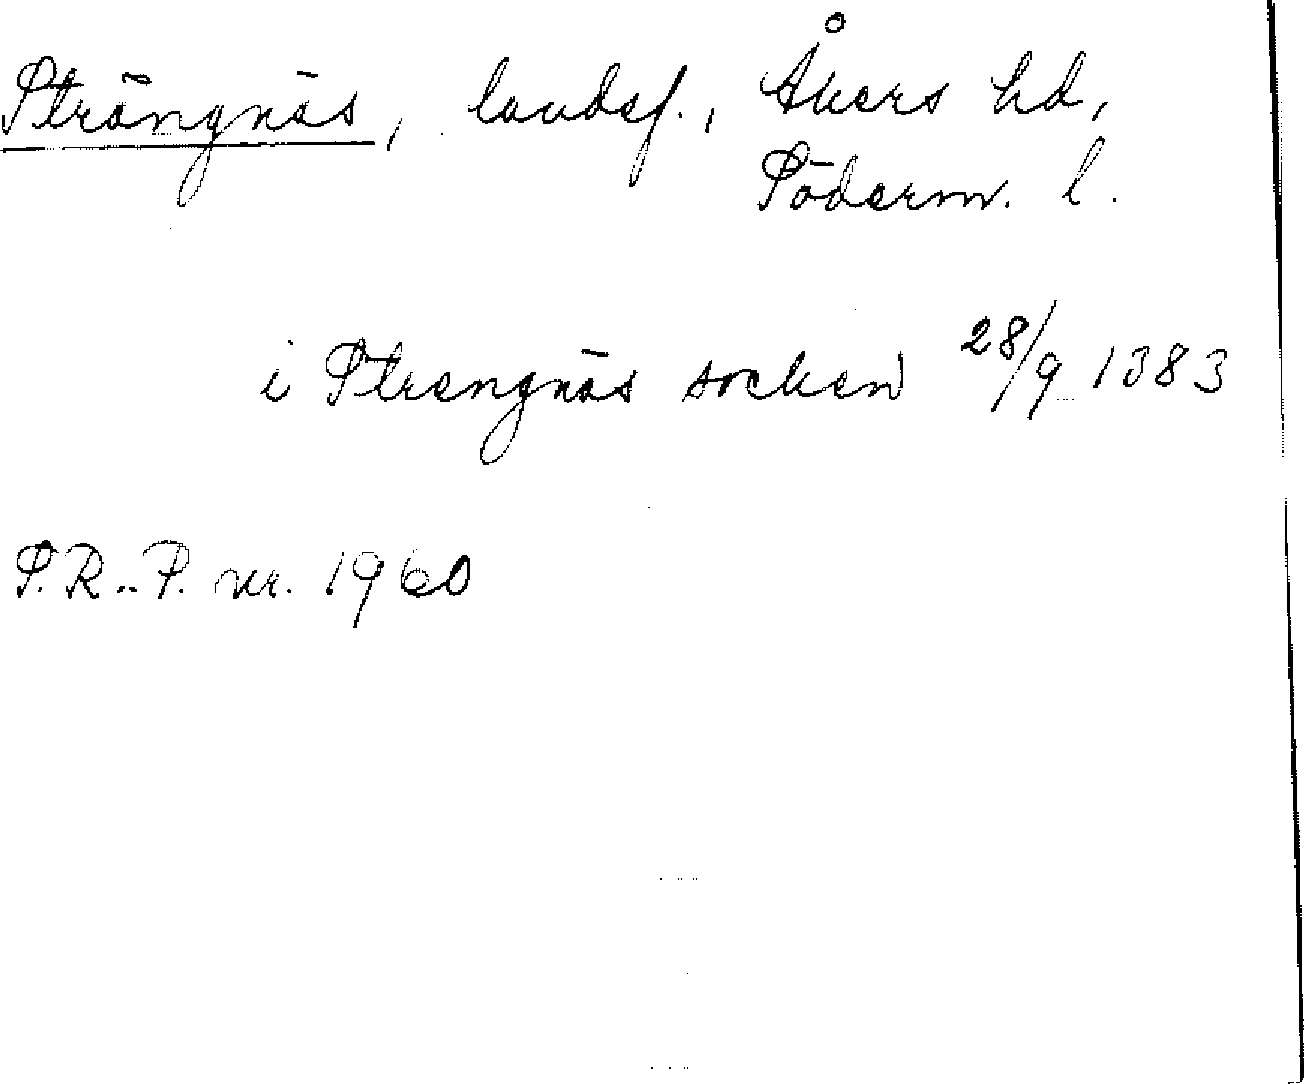 Strängnäs, landsf., Åkers hd,
Söderm. l.
i Strengnäs socken 28/9 1383
S.R.-P. nr. 1960